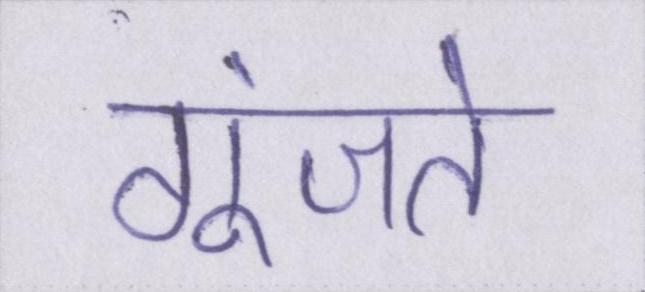 गूंजते